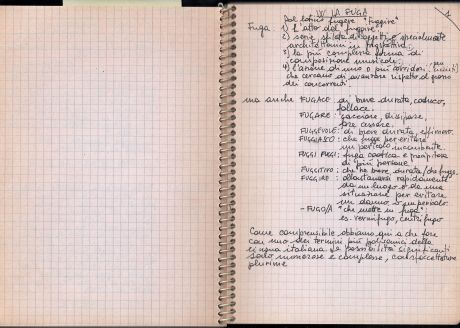 W LA FUGA
1
Dal latino fugere "fuggire"
Fuga: 1) l'atto del fuggire
2) serie di oggetti specialmente
architettonici in prospettiva
3) la più complessa forma di
composizione musicale
4) l'azione di uno o più corridori
che cercano di avanzare rispetto al grosso
dei concorrenti.
ma anche FUGACE: di breve durata, caduco,
fallace.
FUGARE: cacciare, dissipare,
far cessare.
FUGGEVOLE: di breve durata, effimero.
FUGGIASCO: che fugge per evitare
un pericolo incombente.
FUGGI FUGGI: fuga caotica e precipitosa
di più persone
FUGGITIVO: che ha breve durata/che fugge.
FUGGIRE: allontanarsi rapidamente
da un luogo o da una
situazione per evitare
un danno o un pericolo.
- FUGO/A "che mette in fuga"
es. vermifugo, centrifugo
Come comprensibile abbiamo qui a che fare
con uno dei termini più polisemici della
lingua italiana. Le possibilità significanti
sono numerose e complesse, consfaccettature
plurime